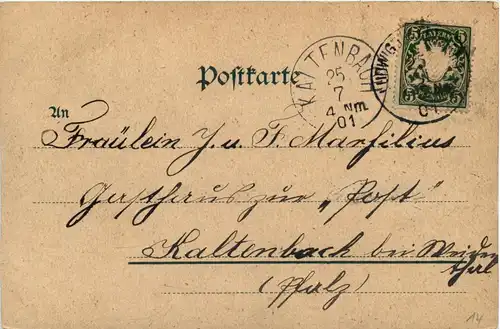 Postkarte
KALTENBACH
25
7
4 Nm
01
BAYERN
5 5
5 5
01
An
Fräulein J. u. F. Marfilius
Gasthaus zur „Post"
Kaltenbach bei Weiden
thal
(Pfalz)
14